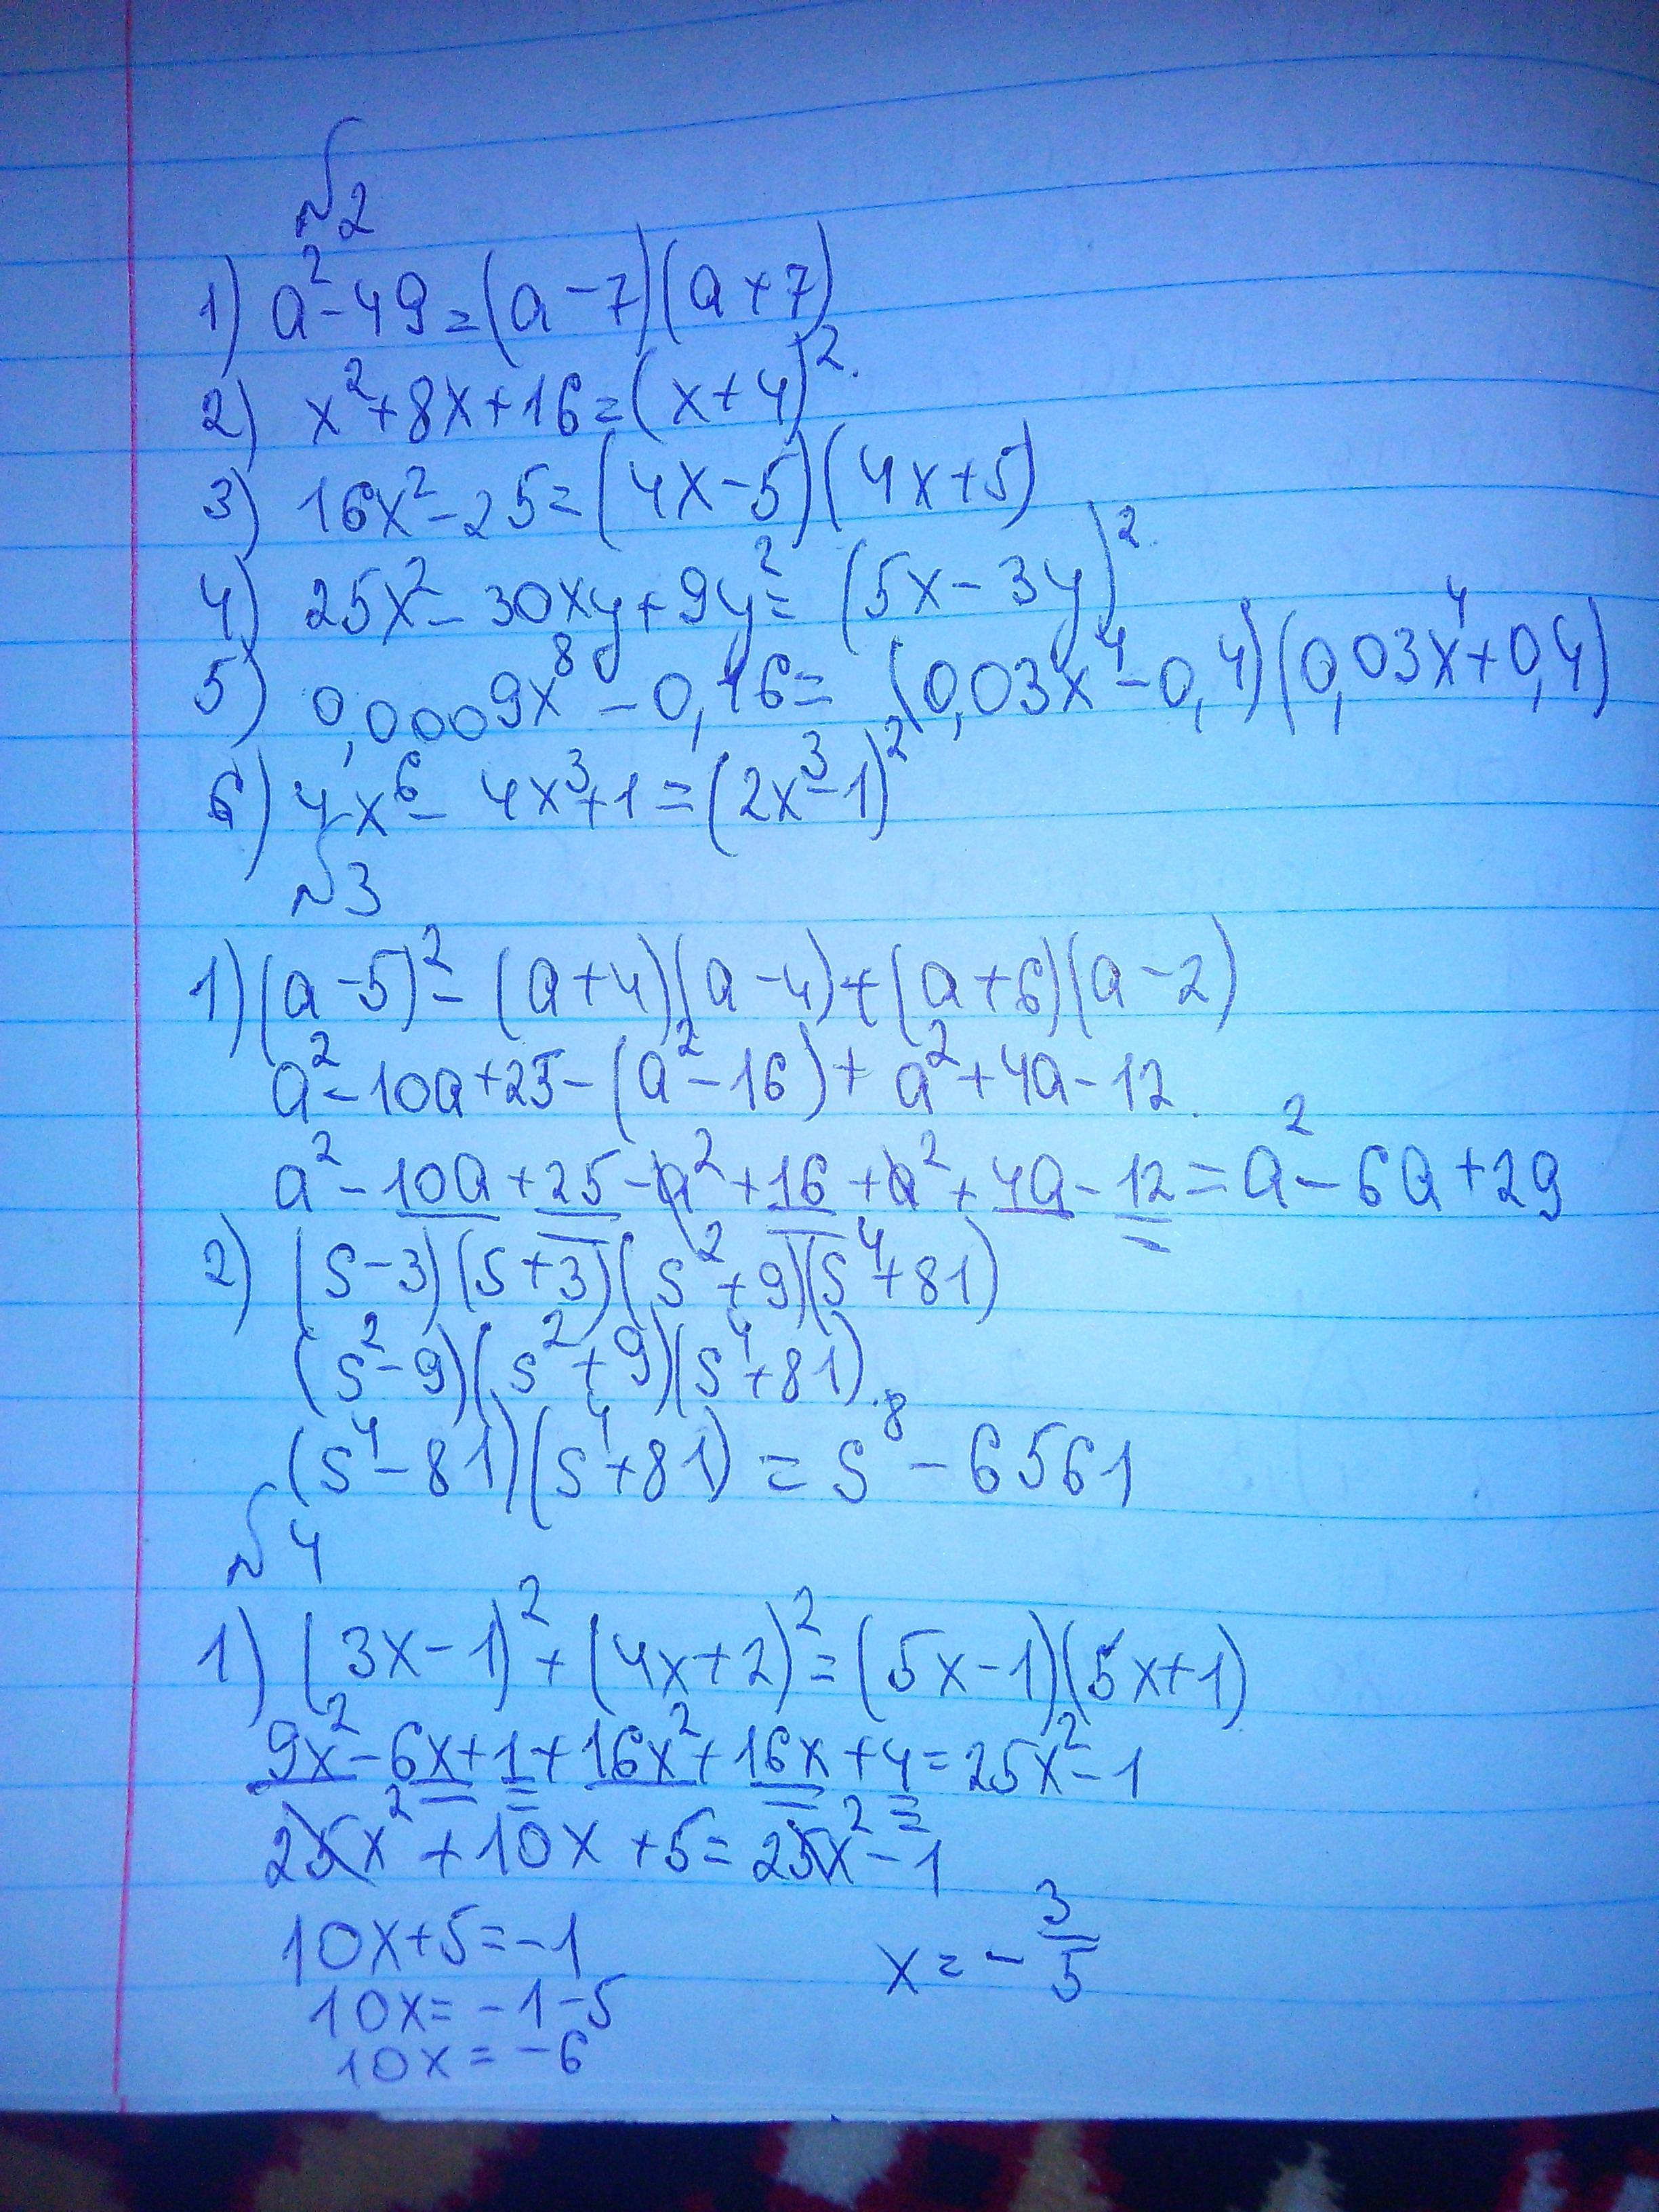 №2
1) a² - 49 = (a - 7)(a + 7)
2) x² + 8x + 16 = (x + 4)².
3) 16x² - 25 = (4x - 5)(4x + 5)
4) 25x² - 30xy + 9y² = (5x - 3y)².
5) 0,0009x⁸ - 0,16 = (0,03x⁴ - 0,4)(0,03x⁴ + 0,4)
6) 4x⁶ - 4x³ + 1 = (2x³ - 1)²
№3
1) (a - 5)² - (a + 4)(a - 4) + (a + 6)(a - 2)
a² - 10a + 25 - (a² - 16) + a² + 4a - 12.
a² - 10a + 25 - a² + 16 + a² + 4a - 12 = a² - 6a + 29
2) (s - 3)(s + 3)(s² + 9)(s⁴ + 81)
(s² - 9)(s² + 9)(s⁴ + 81).
(s⁴ - 81)(s⁴ + 81) = s⁸ - 6561
№4
1) (3x - 1)² + (4x + 2)² = (5x - 1)(5x + 1)
9x² - 6x + 1 + 16x² + 16x + 4 = 25x² - 1
25x² + 10x + 5 = 25x² - 1
10x + 5 = -1
10x = -1 - 5
10x = -6
x = - 3/5